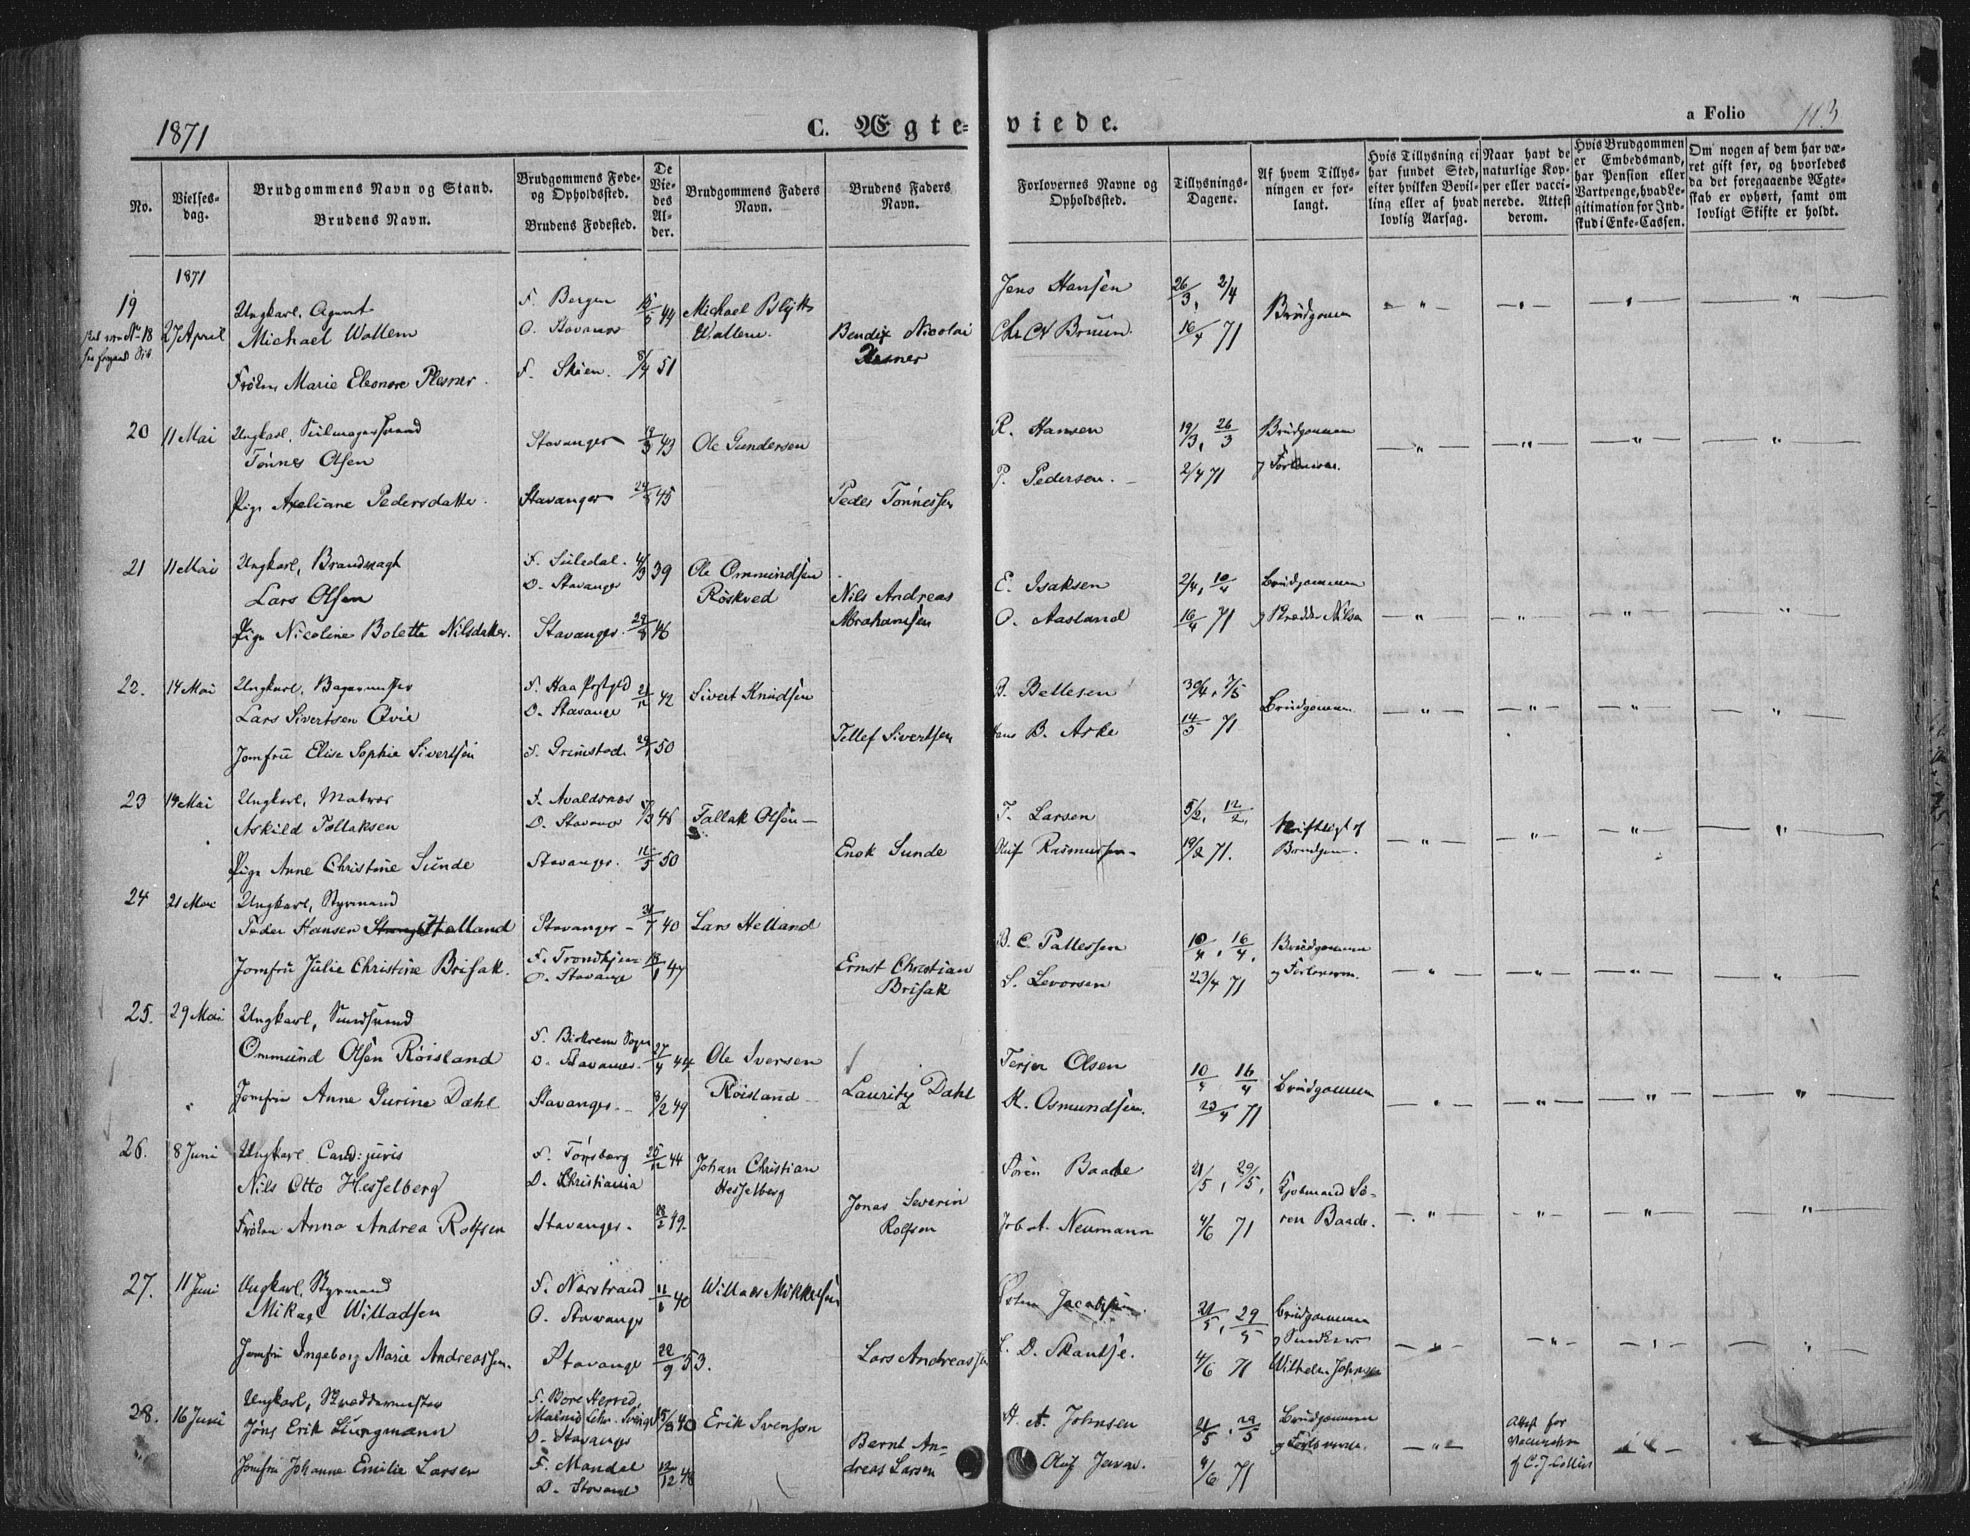 1871
C. Ægteviede.
a Folio 113
No.
Vielsesdag.
Brudgommens Navn og Stand.
Brudens Navn.
Brudgommens Føde- og Opholdssted.
Brudens Fødested.
De Viedes Alder.
Brudgommens Faders Navn.
Brudens Faders Navn.
Forlovernes Navne og Opholdssted.
Tillysnings-Dagene.
Af hvem Tillysningen er forlangt.
Hvis Tillysning ei har fundet Sted, efter hvilken Bevilling eller af hvad lovlig Aarsag.
Naar havt de naturlige Kopper eller vaccinerede. Attest derom.
Hvis Brudgommen er Embedsmand, har Pension eller Vartpenge, hvad Legitimation for Indskud i Enke-Cassen.
Om nogen af dem har været gift før, og hvorledes da det foregaaende Ægteskab er ophørt, samt om lovligt Skifte er holdt.
1871
19 27 April Ungkarl, Agent
Michael Wallem
Frøken Marie Eleonore Plesner
F. Bergen
O. Stavanger 49
F. Skien. 51
Michael Blytt Wallem.
Bendix Nicolai Plesner
Jens Hansen
Chr. Bruun.
26/3, 2/4
16/4 71
Brudgommen
20 11 Mai Ungkarl, Seilmagersvend
Tønnes Olsen
Pige Axeliane Pedersdatter.
Stavanger 43
Stavanger 45
Ole Gundersen
Peder Tønnessen
R. Hansen
P. Pedersen.
19/3, 26/3
2/4 71
Brudgommen
og Forloverne.
21 11 Mai Ungkarl, Brandvagt
Lars Olsen
Pige Nicoline Bolette Nilsdatter.
F. Suledal.
O. Stavanger 39
Stavanger. 46
Ole Ommundsen
Røskved
Nils Andreas
Abrahamsen
E. Isaksen
O. Aasland
2/4, 10/4
16/4 71
Brudgommen
22. 14 Mai Ungkarl, Bagermester
Lars Sivertsen Qvie
Jomfru Elise Sophie Sivertsen
F. Haa
O. Stavanger 42
F. Grimstad 50
Sivert Knudsen
Tellef Sivertsen
B. Bellesen
B. Aske
30/4, 7/5
14/5 71
Brudgommen
23 14 Mai Ungkarl, Matros
Askild Tollaksen
Pige Anne Christine Sunde
F. Avaldsnæs
O. Stavanger 46
Stavanger. 50
Tallak Olsen
Enok Sunde
T. Larsen
Oluf Rasmussen
5/2, 12/2,
19/2 71.
Skriftligt af
Brudgom.
24 21 Mai Ungkarl, Styrmand
Peder Hansen Helland
Jomfru Julie Christine Brisak.
Stavanger 40
F. Trondhjem
O. Stavanger 47
Lars Helland
Ernst Christian
Brisak
B. C. Pallessen
S. Levorsen
10/4, 16/4,
23/4 71
Brudgommen
og Forloverne.
25. 29 Mai Ungkarl,
Ommund Olsen Røisland
Jomfru Anne Gurine Dahl
F. Birkrem Sogn
O. Stavanger. 27/4 44
Stavanger. 49
Ole Iversen
Røisland
Lauritz Dahl
Terjer Olsen
M. Osmundsen.
10/4 16/4
23/4 71
Brudgommen
26. 8 Juni Ungkarl Cand: juris
Nils Otto Hesselberg
Frøken Anna Andrea Rolfsen
F. Tønsberg
O. Christiania 25/12 44
Stavanger. 49.
Johan Christian
Hesselberg
Jonas Severin
Rolfsen
Søren Baade
Jacob A. Neumann
21/5, 29/5,
4/6 71
Kjøbmand Søren Baade.
27. 11 Juni Ungkarl, Styrmand
Mikael Willadsen
Jomfru Ingeborg Marie Andreassen.
F. Nærstrand
O. Stavanger 40
Stavanger 22/9 53.
Willads Mikkelsen
Lars Andreassen
Jacobsen.
D. Skantse.
21/5, 29/5
4/6 71
Brudgommen
Wilhelm Johnsen
28. 16 Juni Ungkarl, Skræddermester
Jøns Erik Ljungmann
Jomfru Johanne Emilie Larsen
F. Bore Herred,
Malmø Lehn. Sverige
O. Stavanger 40
F. Mandal
O. Stavanger 12/12 48
Erik Svensson
Bernt Andreas Larsen
H. A. Johnsen
Oluf
21/5, 29/5
4/6 71
Brudgommen
og Forloverne.
Attest for
Vaccination
af C. J.